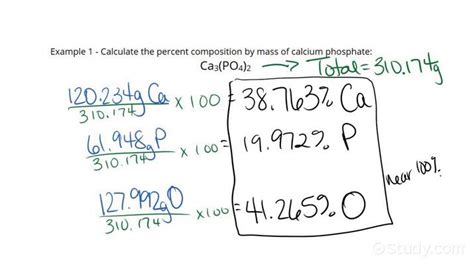 Example 1 - Calculate the percent composition by mass of calcium phosphate:
Ca₃(PO₄)₂ → Total = 310.174g
120.234g Ca / 310.174 x 100 = 38.763% Ca
61.948g P / 310.174g x 100 = 19.972% P
near 100%
127.992g O / 310.174g x 100 = 41.265% O
Study.com